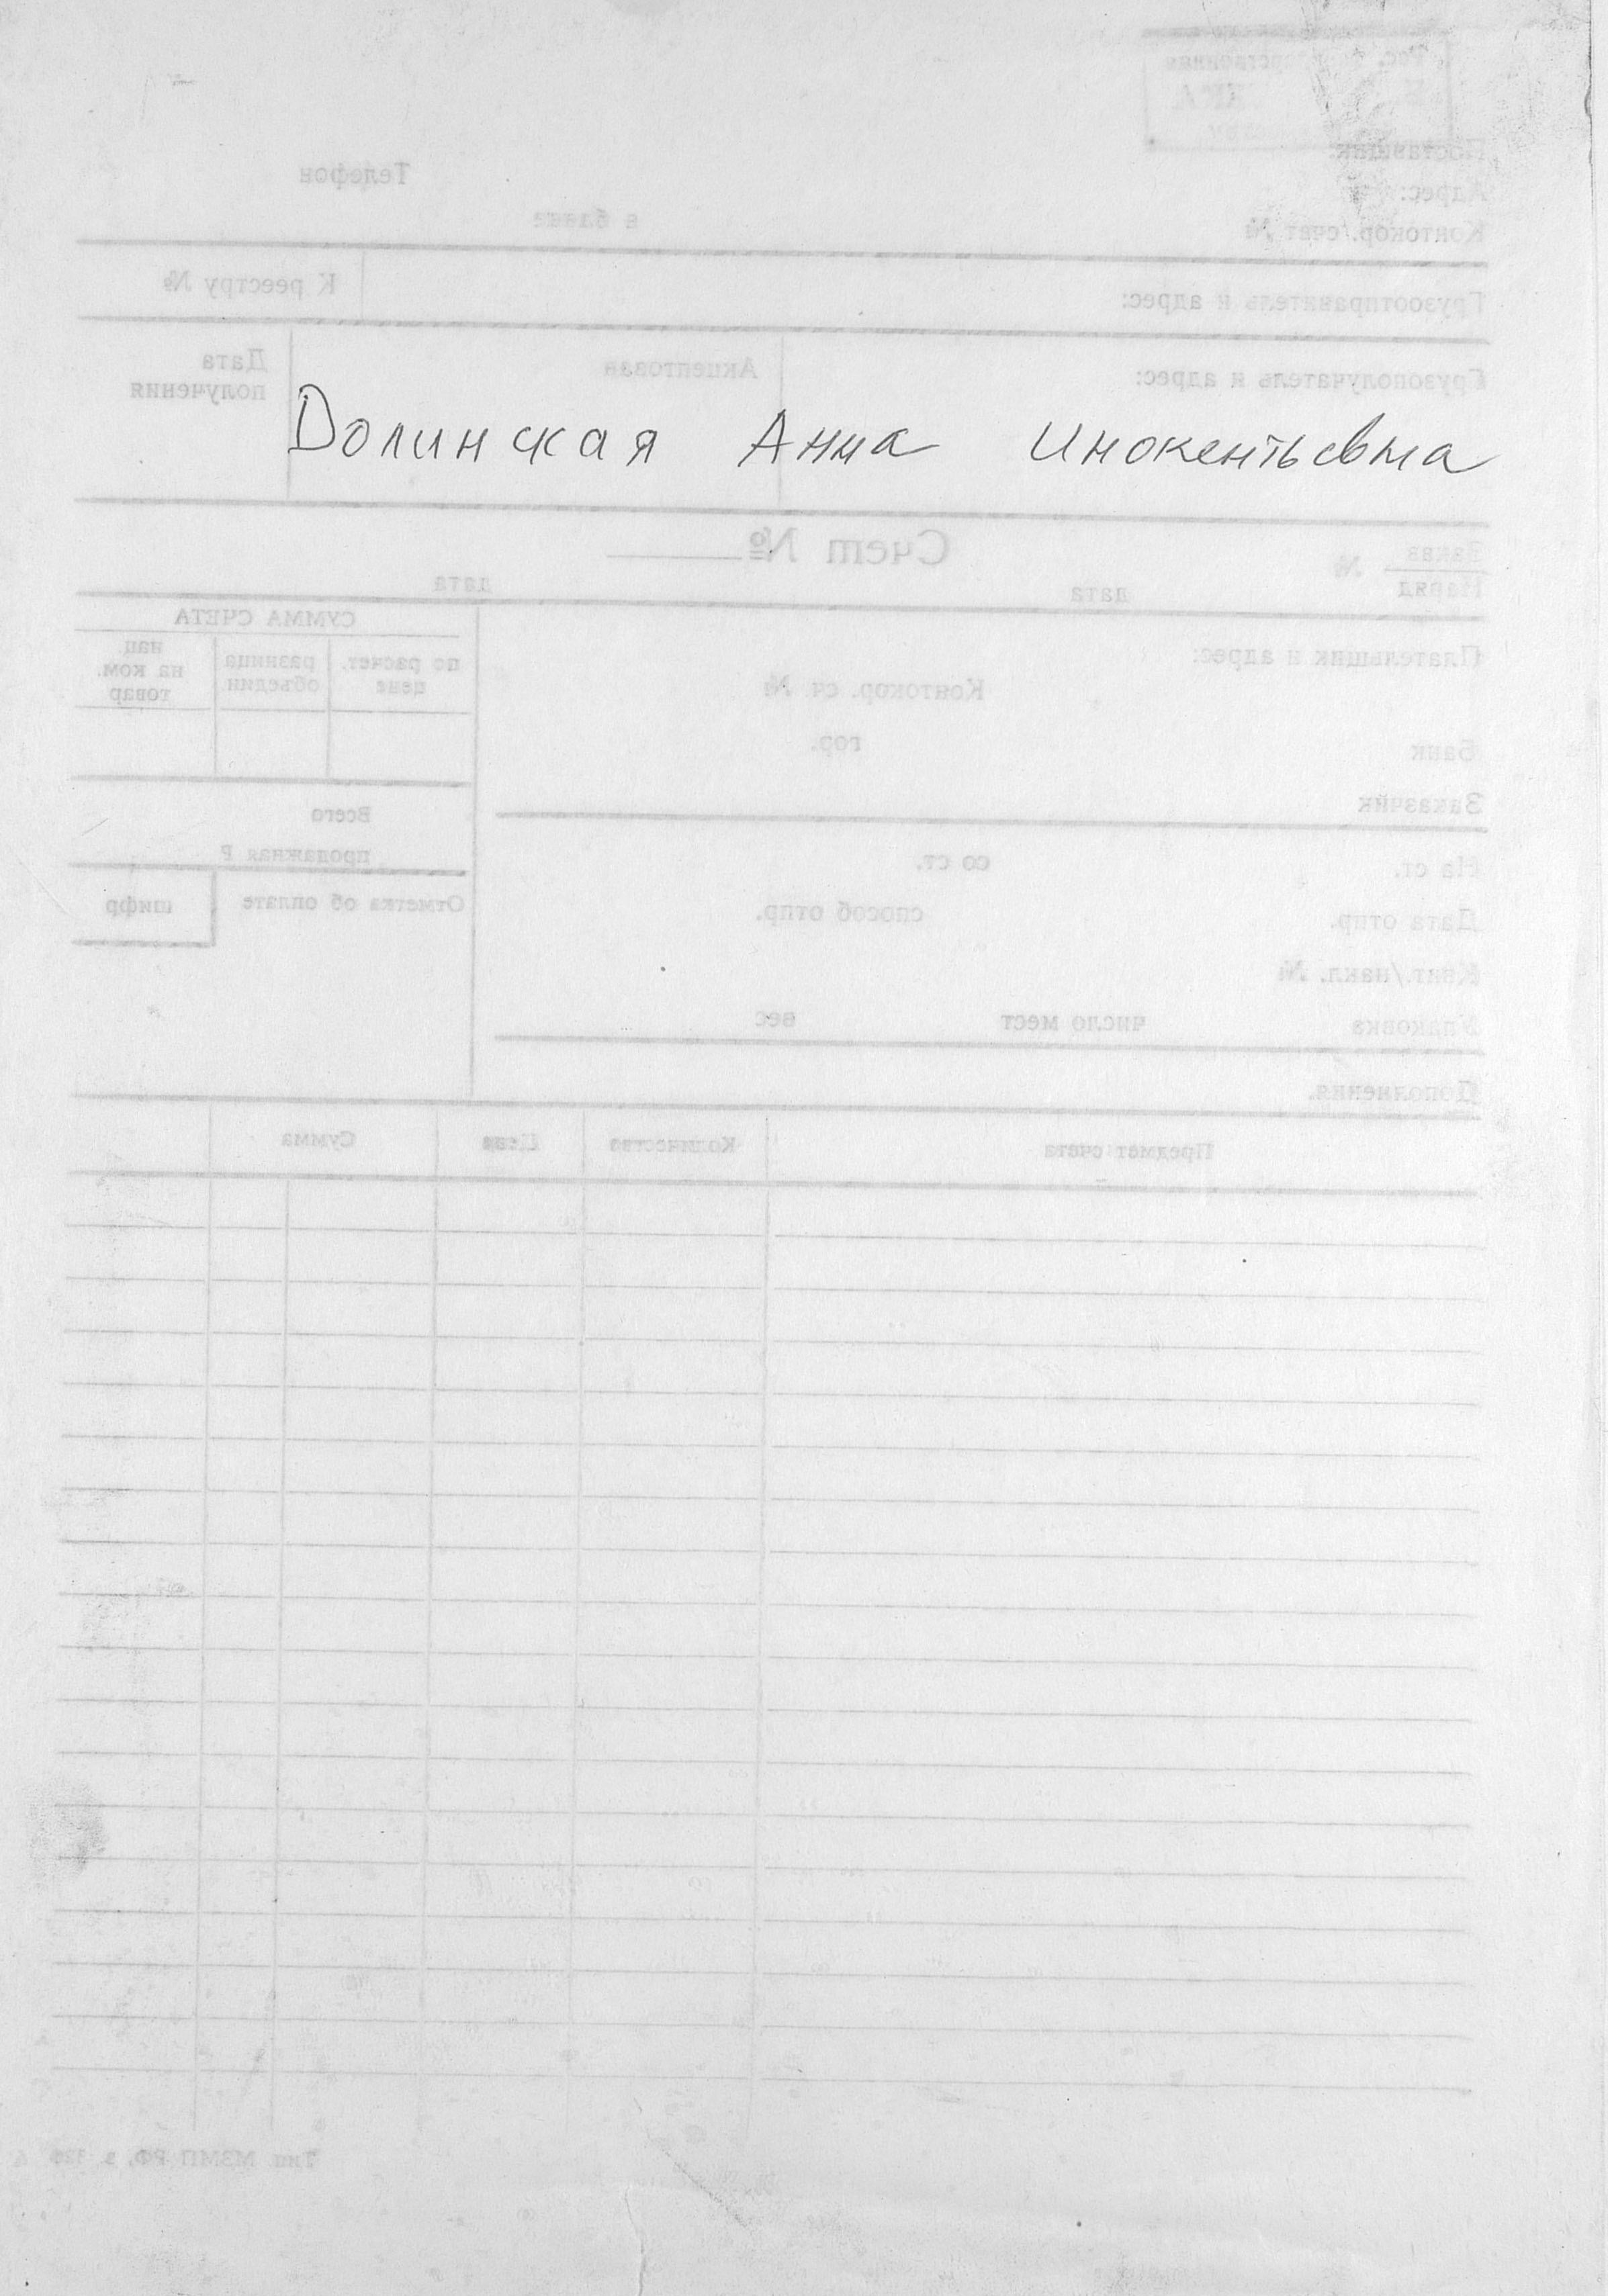 Долинская Анна Инокентьевна
Телефон
Поставщик:
Адрес:
Контокор./счет №
в банке
К реестру №
Грузоотправитель и адрес:
Дата получения
Акцептован
Грузополучатель и адрес:
Счет №
Заказ
Наряд
№
дата
дата
СУММА СЧЕТА
нац. на ком. товар
разница объедин
по расчет. цене
Плательщик и адрес:
Контокор. сч. №
Банк
гор.
Заказчик
Всего
продажная Р
Отметка об оплате
шифр
На ст.
со ст.
Дата отпр.
способ отпр.
Квит./накл. №
Упаковка
число мест
вес
Дополнения.
Предмет счета
Количество
Цена
Сумма